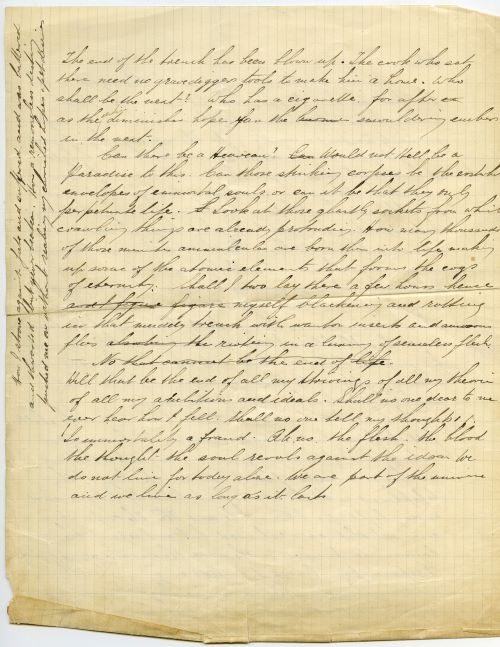 The end of the trench has been blown up. The cook who sat
there need no gravediggers tools to make him a home. Who
shall be the next? Who has a cigarette. for after
as the diminishes hope for the smouldering embers
in the nest.
Can there be a Heaven? Can Would not Hell be a
Paradise to this. Can those stinking corpses be the
envelopes of immortal souls or can it be that they only
perpetuate life. Look at those ghastly sockets from which
crawling things are already protruding. How many thousands
of those minute animalcula are born life making
up some of the atomic elements that form the cogs
of eternity. Shall I too lay there a few hours hence
and figure myself blackening and rotting
in that muddy trench with wanton insects and
flies rioting in a luxury of senseless flesh
No that cannot be the end of life.
Will that be the end of all my strivings of all my theories
of all my ambitions and ideals. Shall no one dear to me
ever hear how I fell. Shall no one tell my thoughts,
Is immortality a fraud. Ah no. the flesh. the blood
the thought the soul revolts against the idea. We
do not live for today alone. We are part of the universe
and we live as long as it lasts
How I stone against fate and suffered and was
and thwarted
pushed me on without realizing my cherished hopes